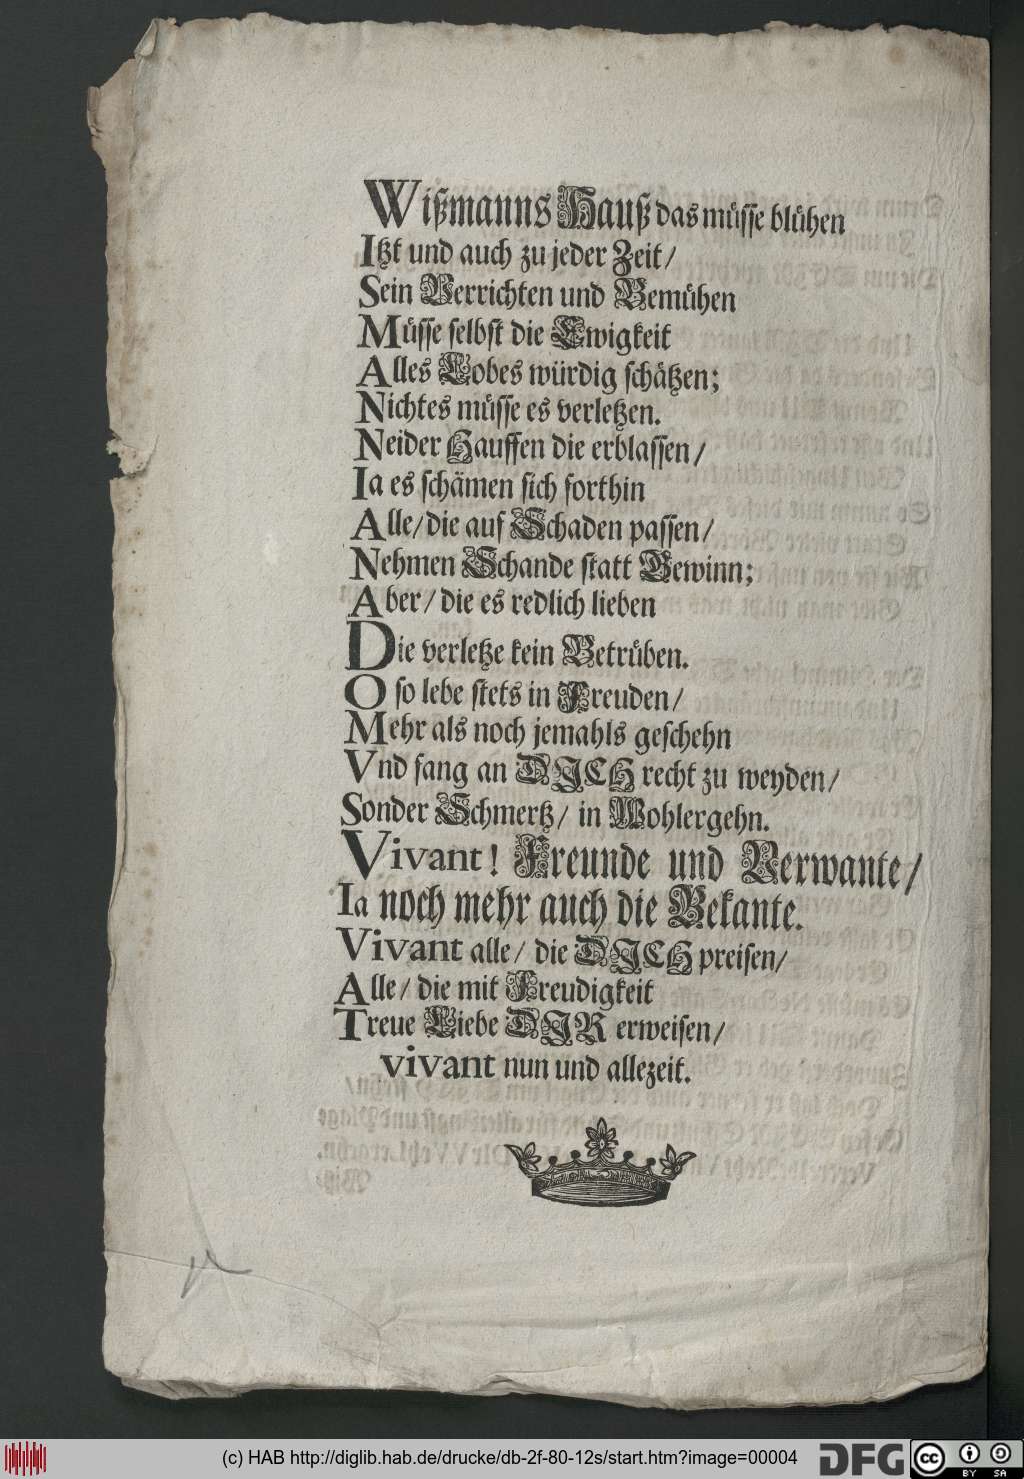 Wißmanns Hauß das müsse blühen
Itzt und auch zu jeder Zeit/
Sein Verrichten und Bemühen
Müsse selbst die Ewigkeit
Alles Lobes würdig schätzen;
Nichtes müsse es verletzen.
Neider Hauffen die erblassen/
Ia es schämen sich forthin
Alle/ die auf Schaden passen/
Nehmen Schande statt Gewinn;
Aber/ die es redlich lieben
Die verletze kein Betrüben.
O so lebe stets in Freuden/
Mehr als noch jemahls geschehn
Vnd fang an DJCH recht zu weyden/
Sonder Schmertz/ in Wohlergehn.
Vivant! Freunde und Verwante/
Ia noch mehr auch die Bekante.
Vivant alle/ die DJCH preisen/
Alle/ die mit Freudigkeit
Treue Liebe DJR erweisen/
vivant nun und allezeit.
(c) HAB http://diglib.hab.de/drucke/db-2f-80-12s/start.htm?image=00004
DFG
cc BY SA